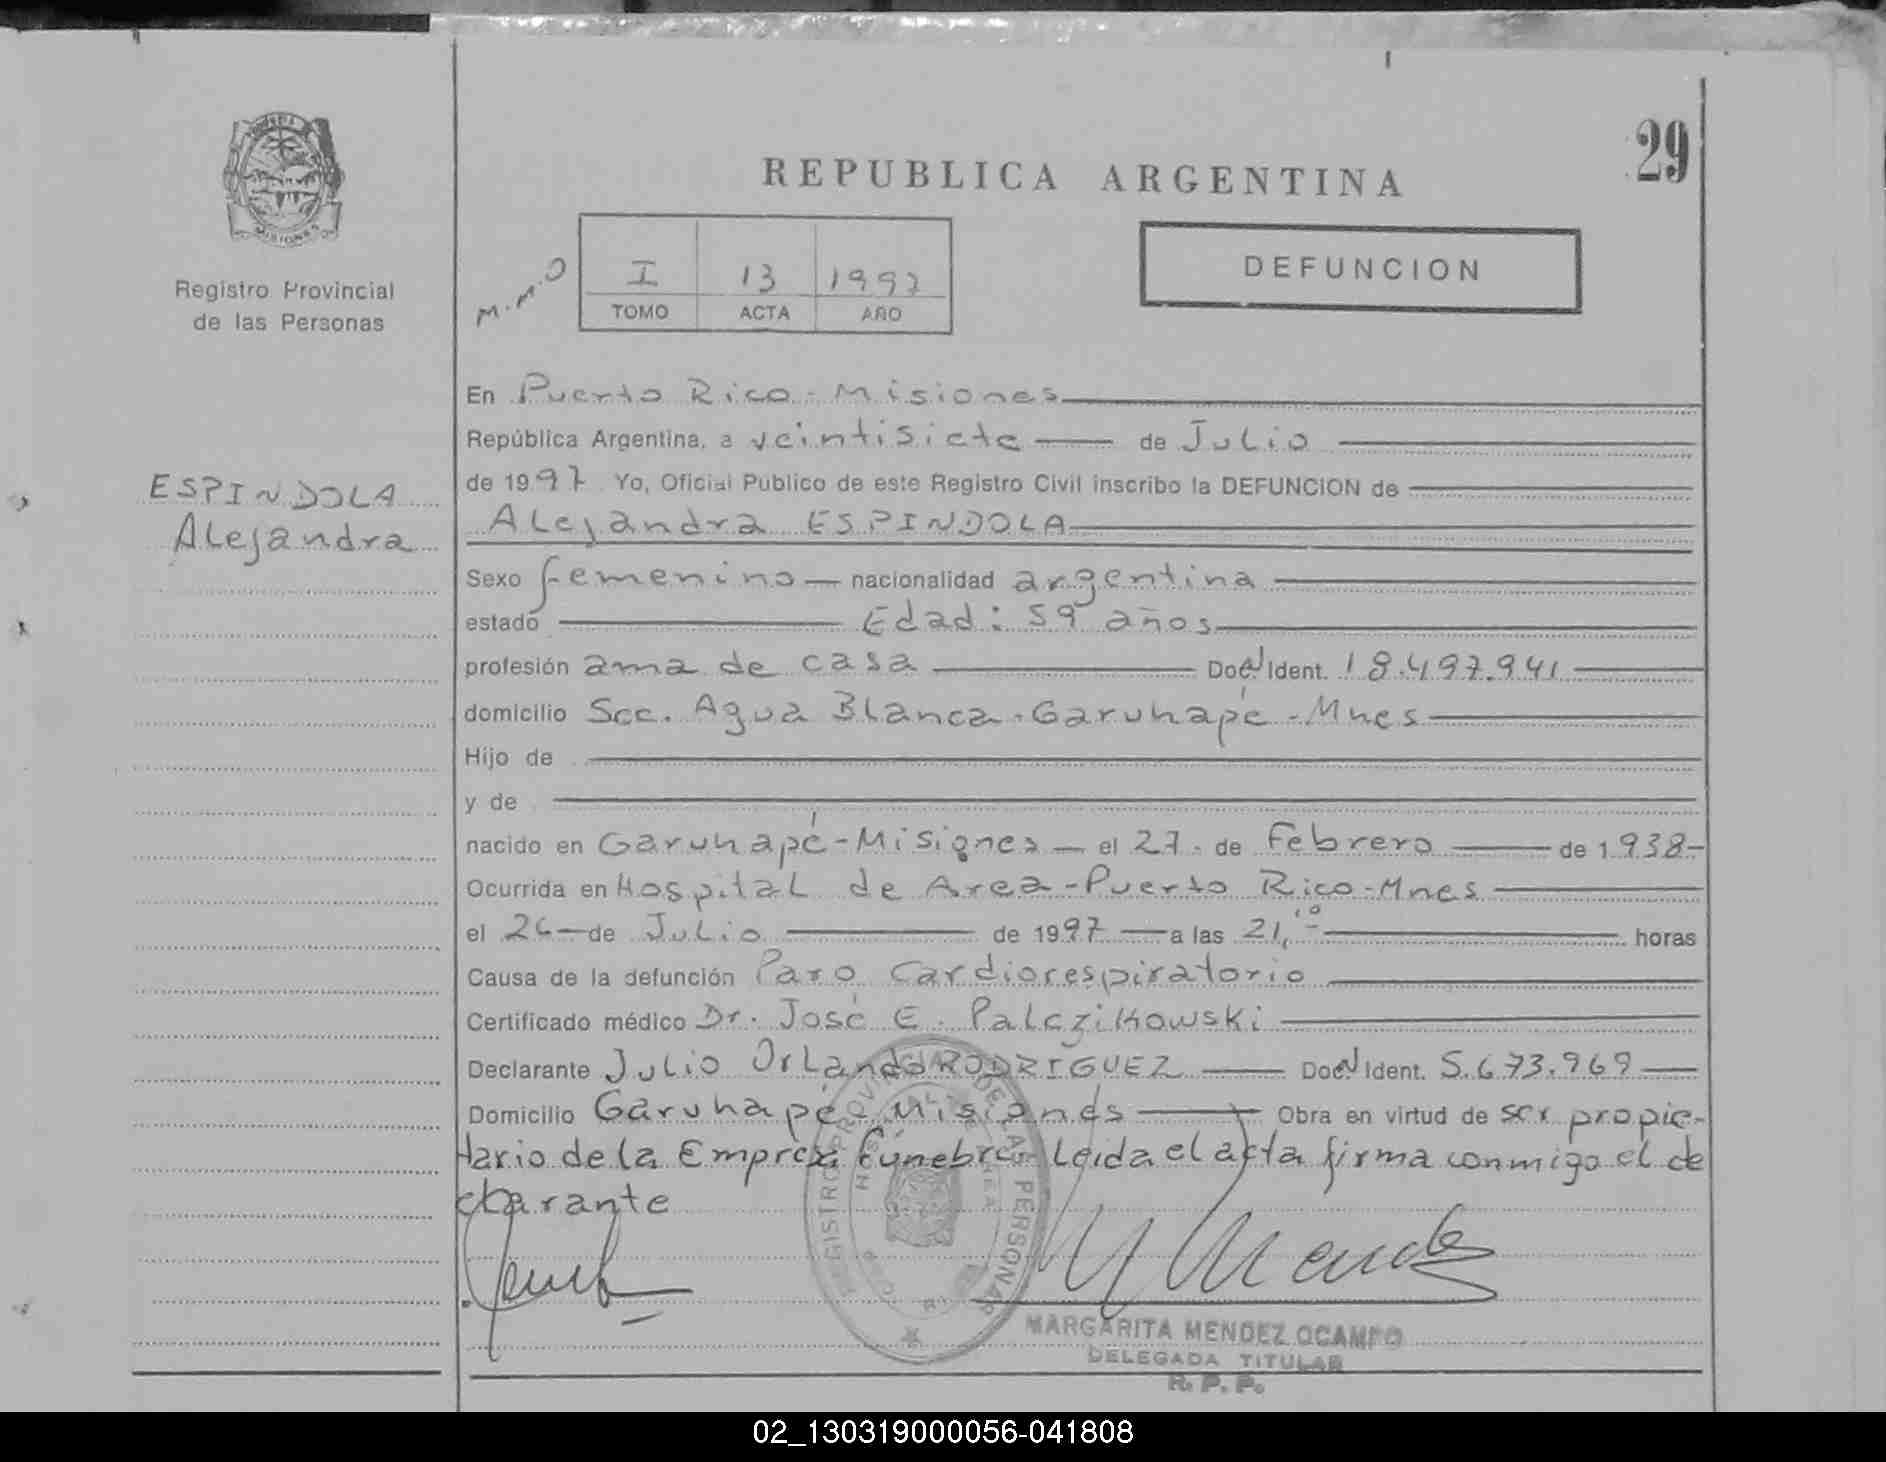 29
REPUBLICA ARGENTINA
MISIONES
Registro Provincial
de las Personas
M.M.O
I 13 1997
TOMO ACTA AÑO
DEFUNCION
ESPINDOLA
Alejandra
En Puerto Rico - Misiones
República Argentina, a veintisiete de Julio
de 1997 Yo, Oficial Publico de este Registro Civil inscribo la DEFUNCION de
Alejandra ESPINDOLA
Sexo femenino nacionalidad argentina
estado Edad: 59 años
profesión ama de casa Doc. Ident. 18.497.941
domicilio Scc. Agua Blanca - Garuhapé - Mnes
Hijo de
y de
nacido en Garuhapé - Misiones el 27 de Febrero de 1938-
Ocurrida en Hospital de Area - Puerto Rico - Mnes
el 26 de Julio de 1997 a las 21,10 horas
Causa de la defunción Paro Cardiorespiratorio
Certificado médico Dr. José E. Palczikowski
Declarante Julio Orlando RODRIGUEZ Doc. Ident. 5.673.969
Domicilio Garuhapé - Misiones Obra en virtud de ser propie-
tario de la Empresa fúnebre Leida el acta firma conmigo el de
clarante
REGISTRO PROVINCIAL DE LAS PERSONAS
HOSPITAL DE AREA
MARGARITA MENDEZ OCAMPO
DELEGADA TITULAR
R. P. P.
02_130319000056-041808